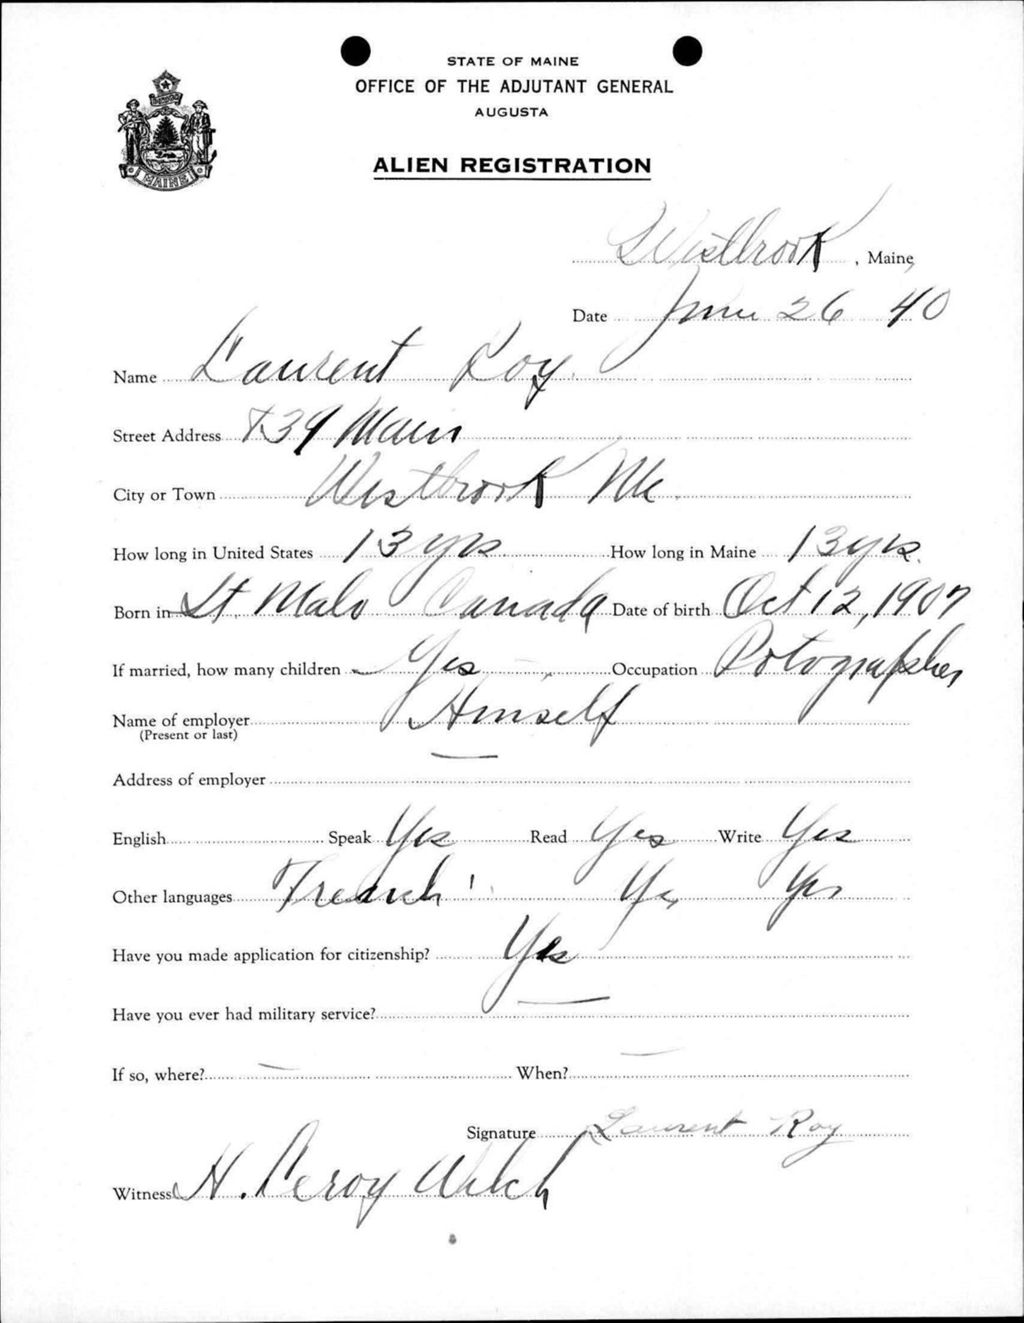 STATE OF MAINE
OFFICE OF THE ADJUTANT GENERAL
AUGUSTA
MAINE
ALIEN REGISTRATION
Westbrook, Maine
Date June 26 40
Name Laurent Roy.
Street Address 739 Main
City or Town Westbrook Me.
How long in United States 13 yrs. How long in Maine 13 yrs.
Born in St. Malo Canada Date of birth Oct 12, 1907
If married, how many children Yes Occupation Potographer
Name of employer Himself
(Present or last)
Address of employer —
English Speak Yes Read Yes Write Yes
Other languages French Yes Yes
Have you made application for citizenship? Yes
Have you ever had military service? —
If so, where? — When? —
Signature Laurent Roy
Witness H. Leroy Welch